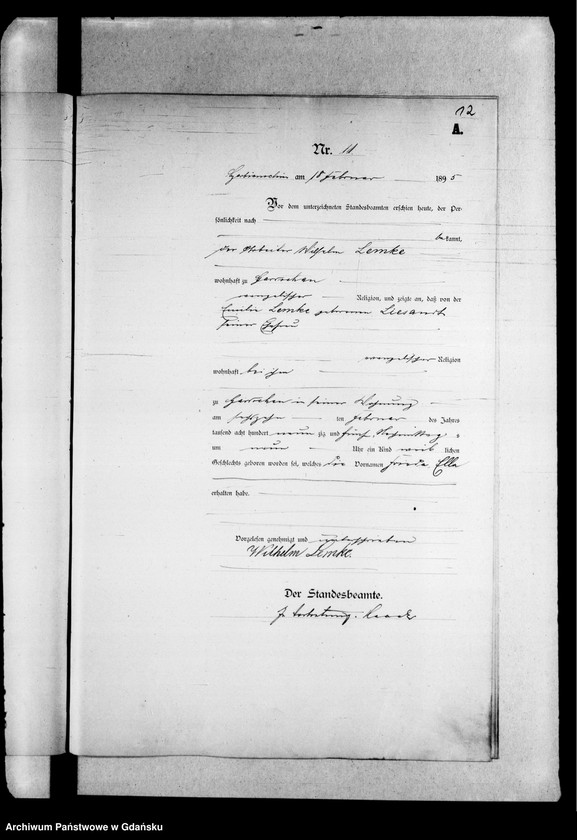 12
A.
Nr. 11
am 18 Februar 1895
Vor dem unterzeichneten Standesbeamten erschien heute, der Per-
sönlichkeit nach
bekannt,
der Arbeiter Wilhelm Lemke
wohnhaft zu
evangelischer Religion, und zeigte an, daß von der
Emilie Lemke geborenen
seiner Ehefrau
evangelischer Religion
wohnhaft bei ihm
zu in seiner Wohnung
am sechszehn ten Februar des Jahres
tausend acht hundert neunzig und fünf Nachmittags
um neun Uhr ein Kind weiblichen
Geschlechts geboren worden sei, welches die Vornamen Frieda Ella
erhalten habe.
Vorgelesen genehmigt und unterschrieben
Wilhelm Lemke.
Der Standesbeamte.
In Vertretung.
Archiwum Państwowe w Gdańsku